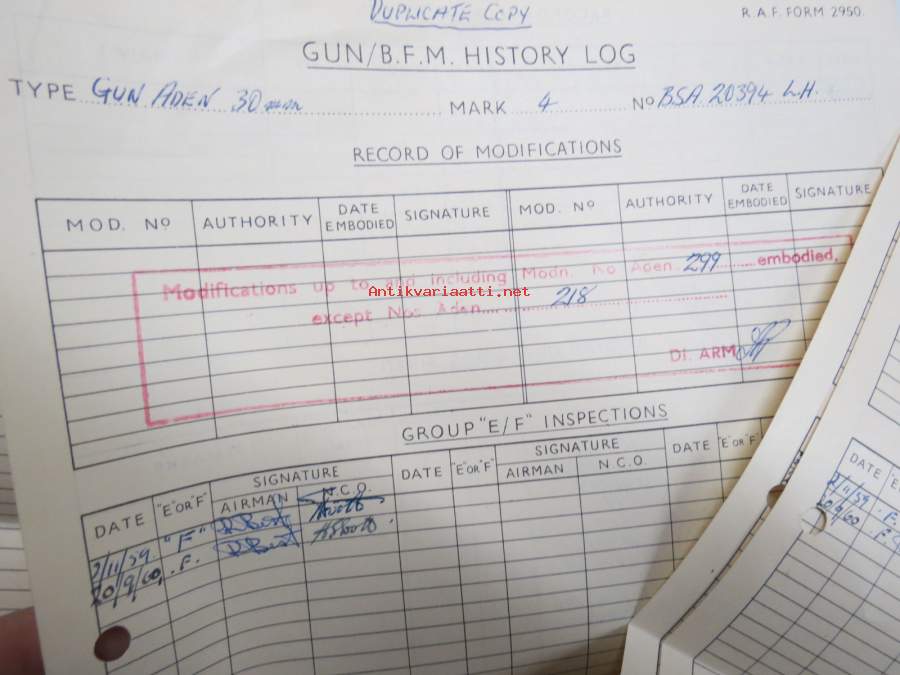 DUPLICATE COPY
R.A.F. FORM 2950.
GUN/B.F.M. HISTORY LOG
TYPE GUN ADEN 30 mm MARK 4 No BSA 20394 L.H.
RECORD OF MODIFICATIONS
MOD. No AUTHORITY DATE EMBODIED SIGNATURE MOD. No AUTHORITY DATE EMBODIED SIGNATURE
Modifications up to and including Modn. No Aden 299 embodied,
Antikvariaatti.net
except Nos Aden 218
DI. ARM
GROUP "E/F" INSPECTIONS
DATE "E" OR "F" SIGNATURE DATE "E" OR "F" SIGNATURE DATE "E" OR "F"
AIRMAN N.C.O. AIRMAN N.C.O.
/11/59. "F"
20/9/60. .F.
DATE
/11/59 . F.
20/9/60 . F.